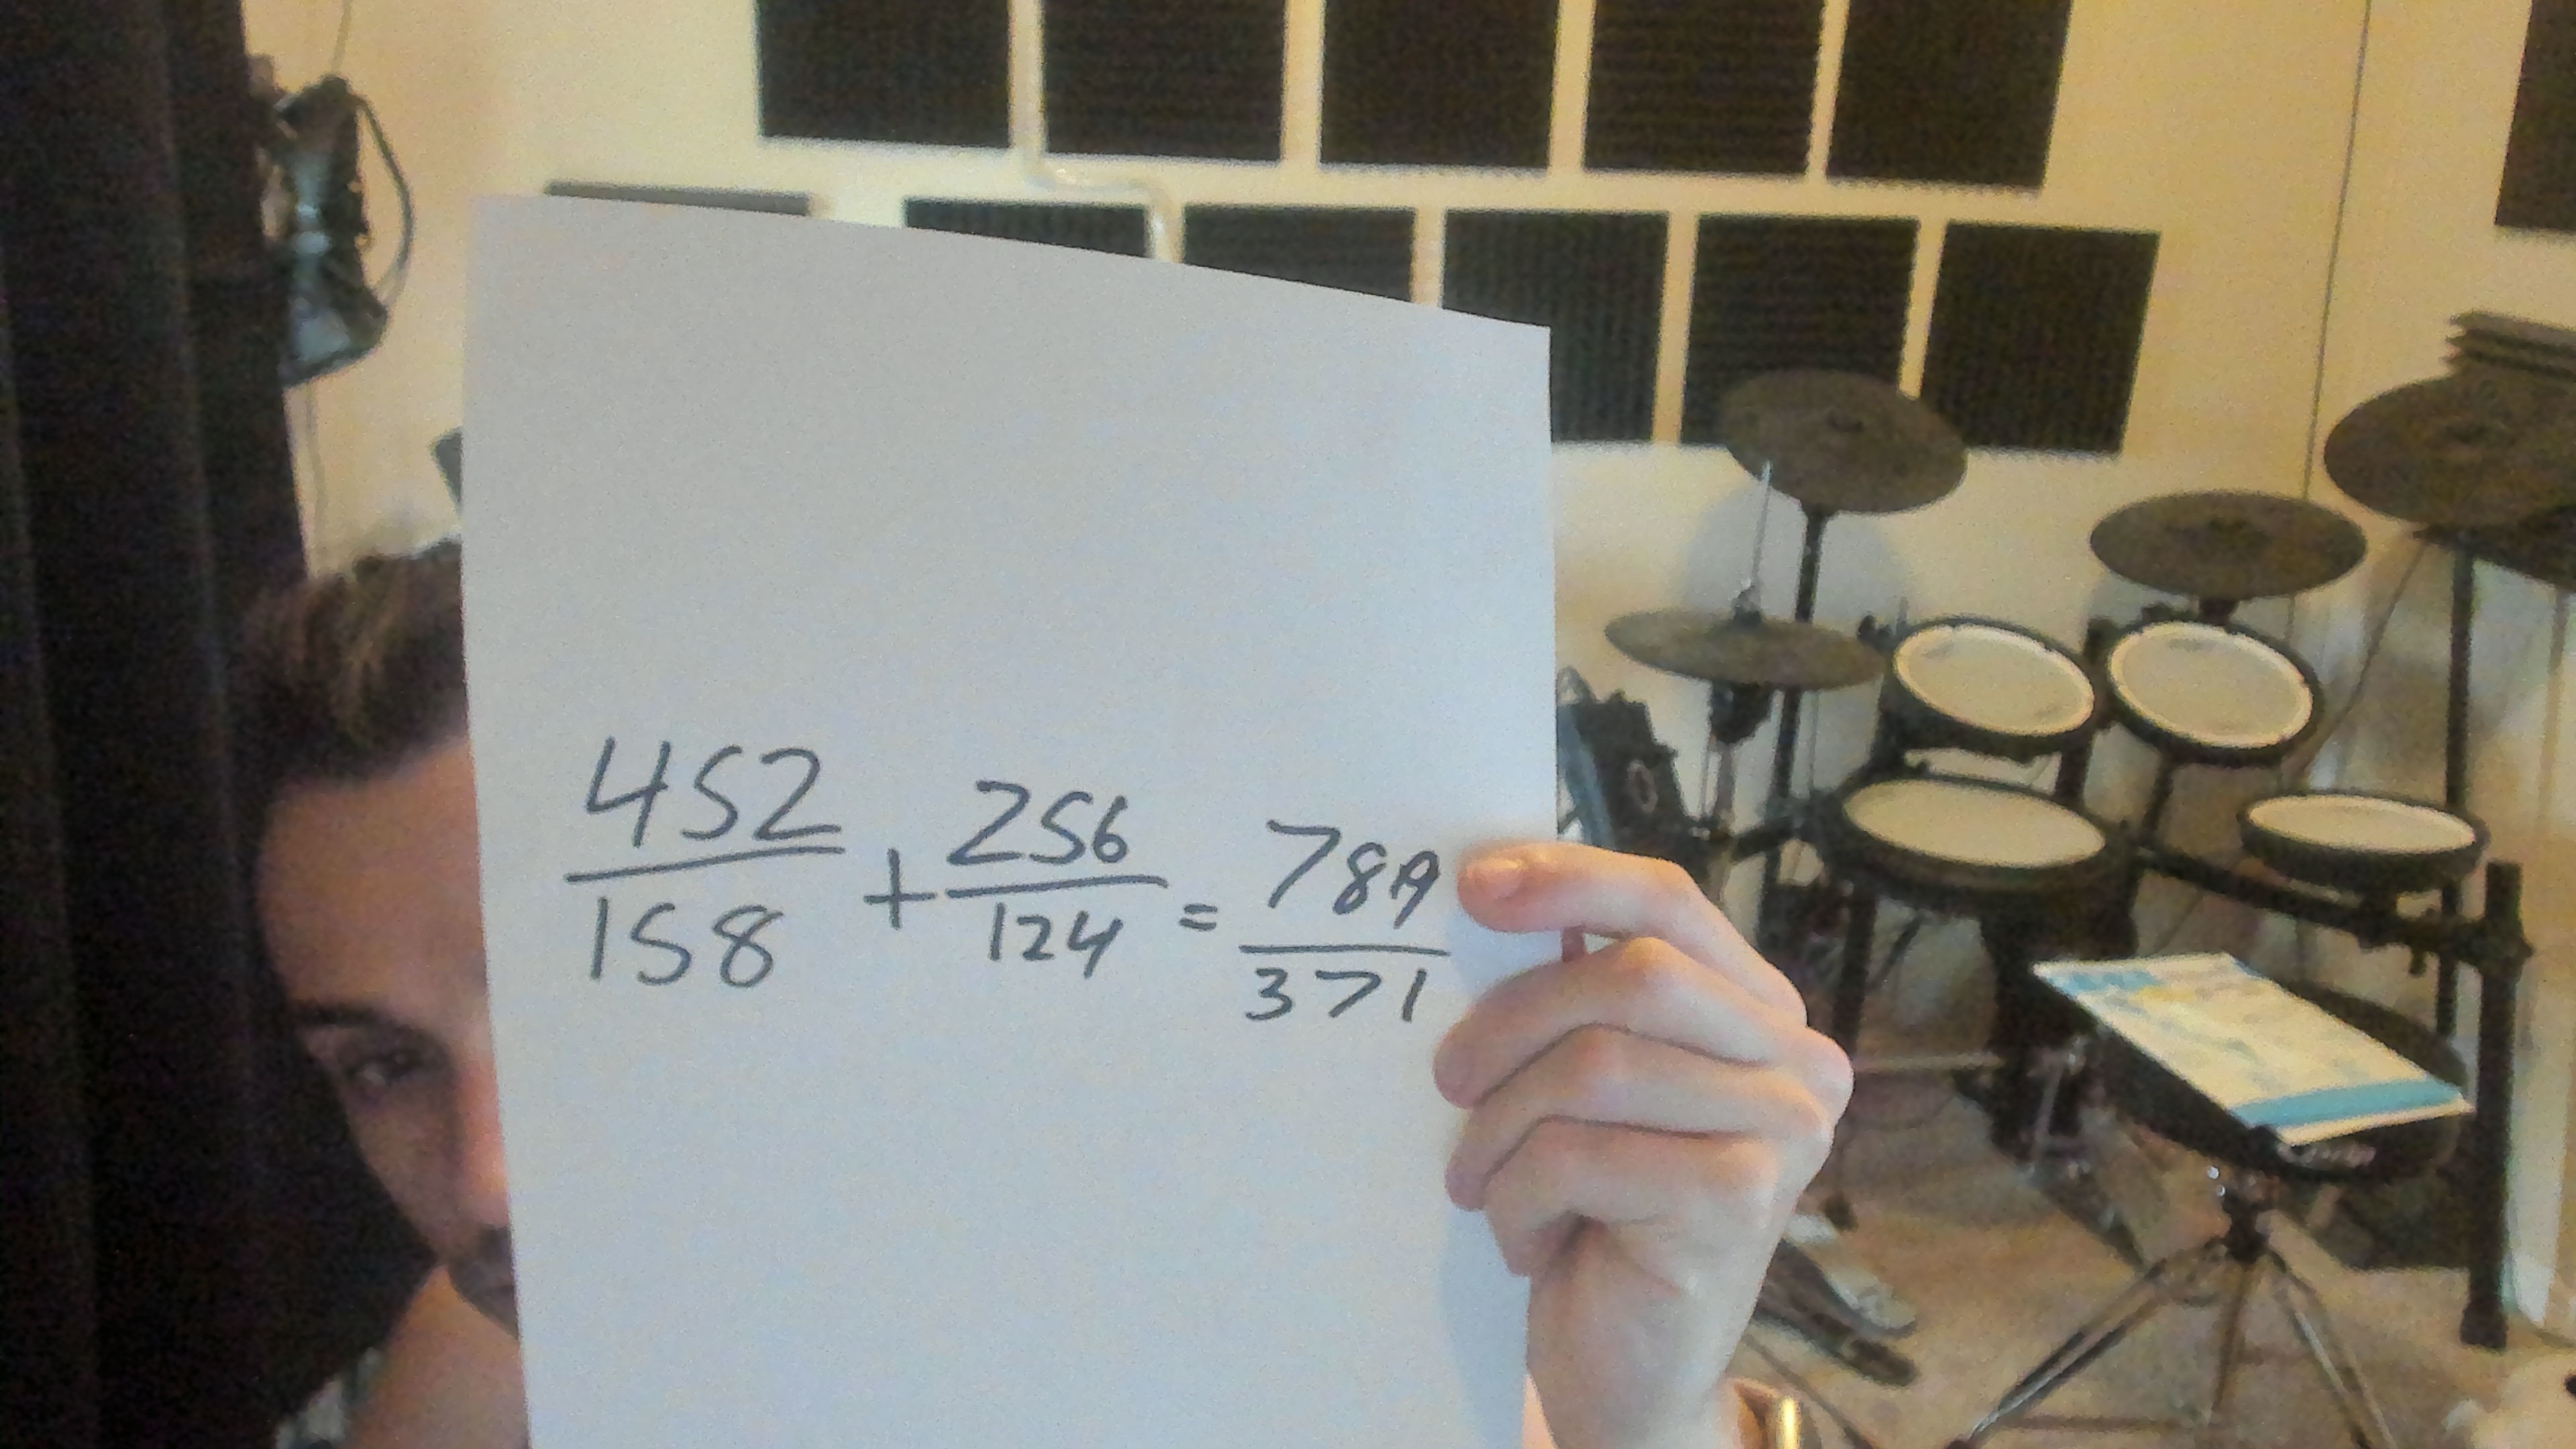 452/158 + 256/124 = 789/371